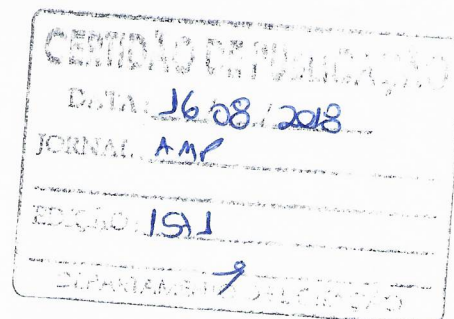 CERTIDÃO DE PUBLICAÇÃO
DATA: 16/08/2018
JORNAL: AMP
EDIÇÃO:
DEPARTAMENTO DE LICITAÇÃO